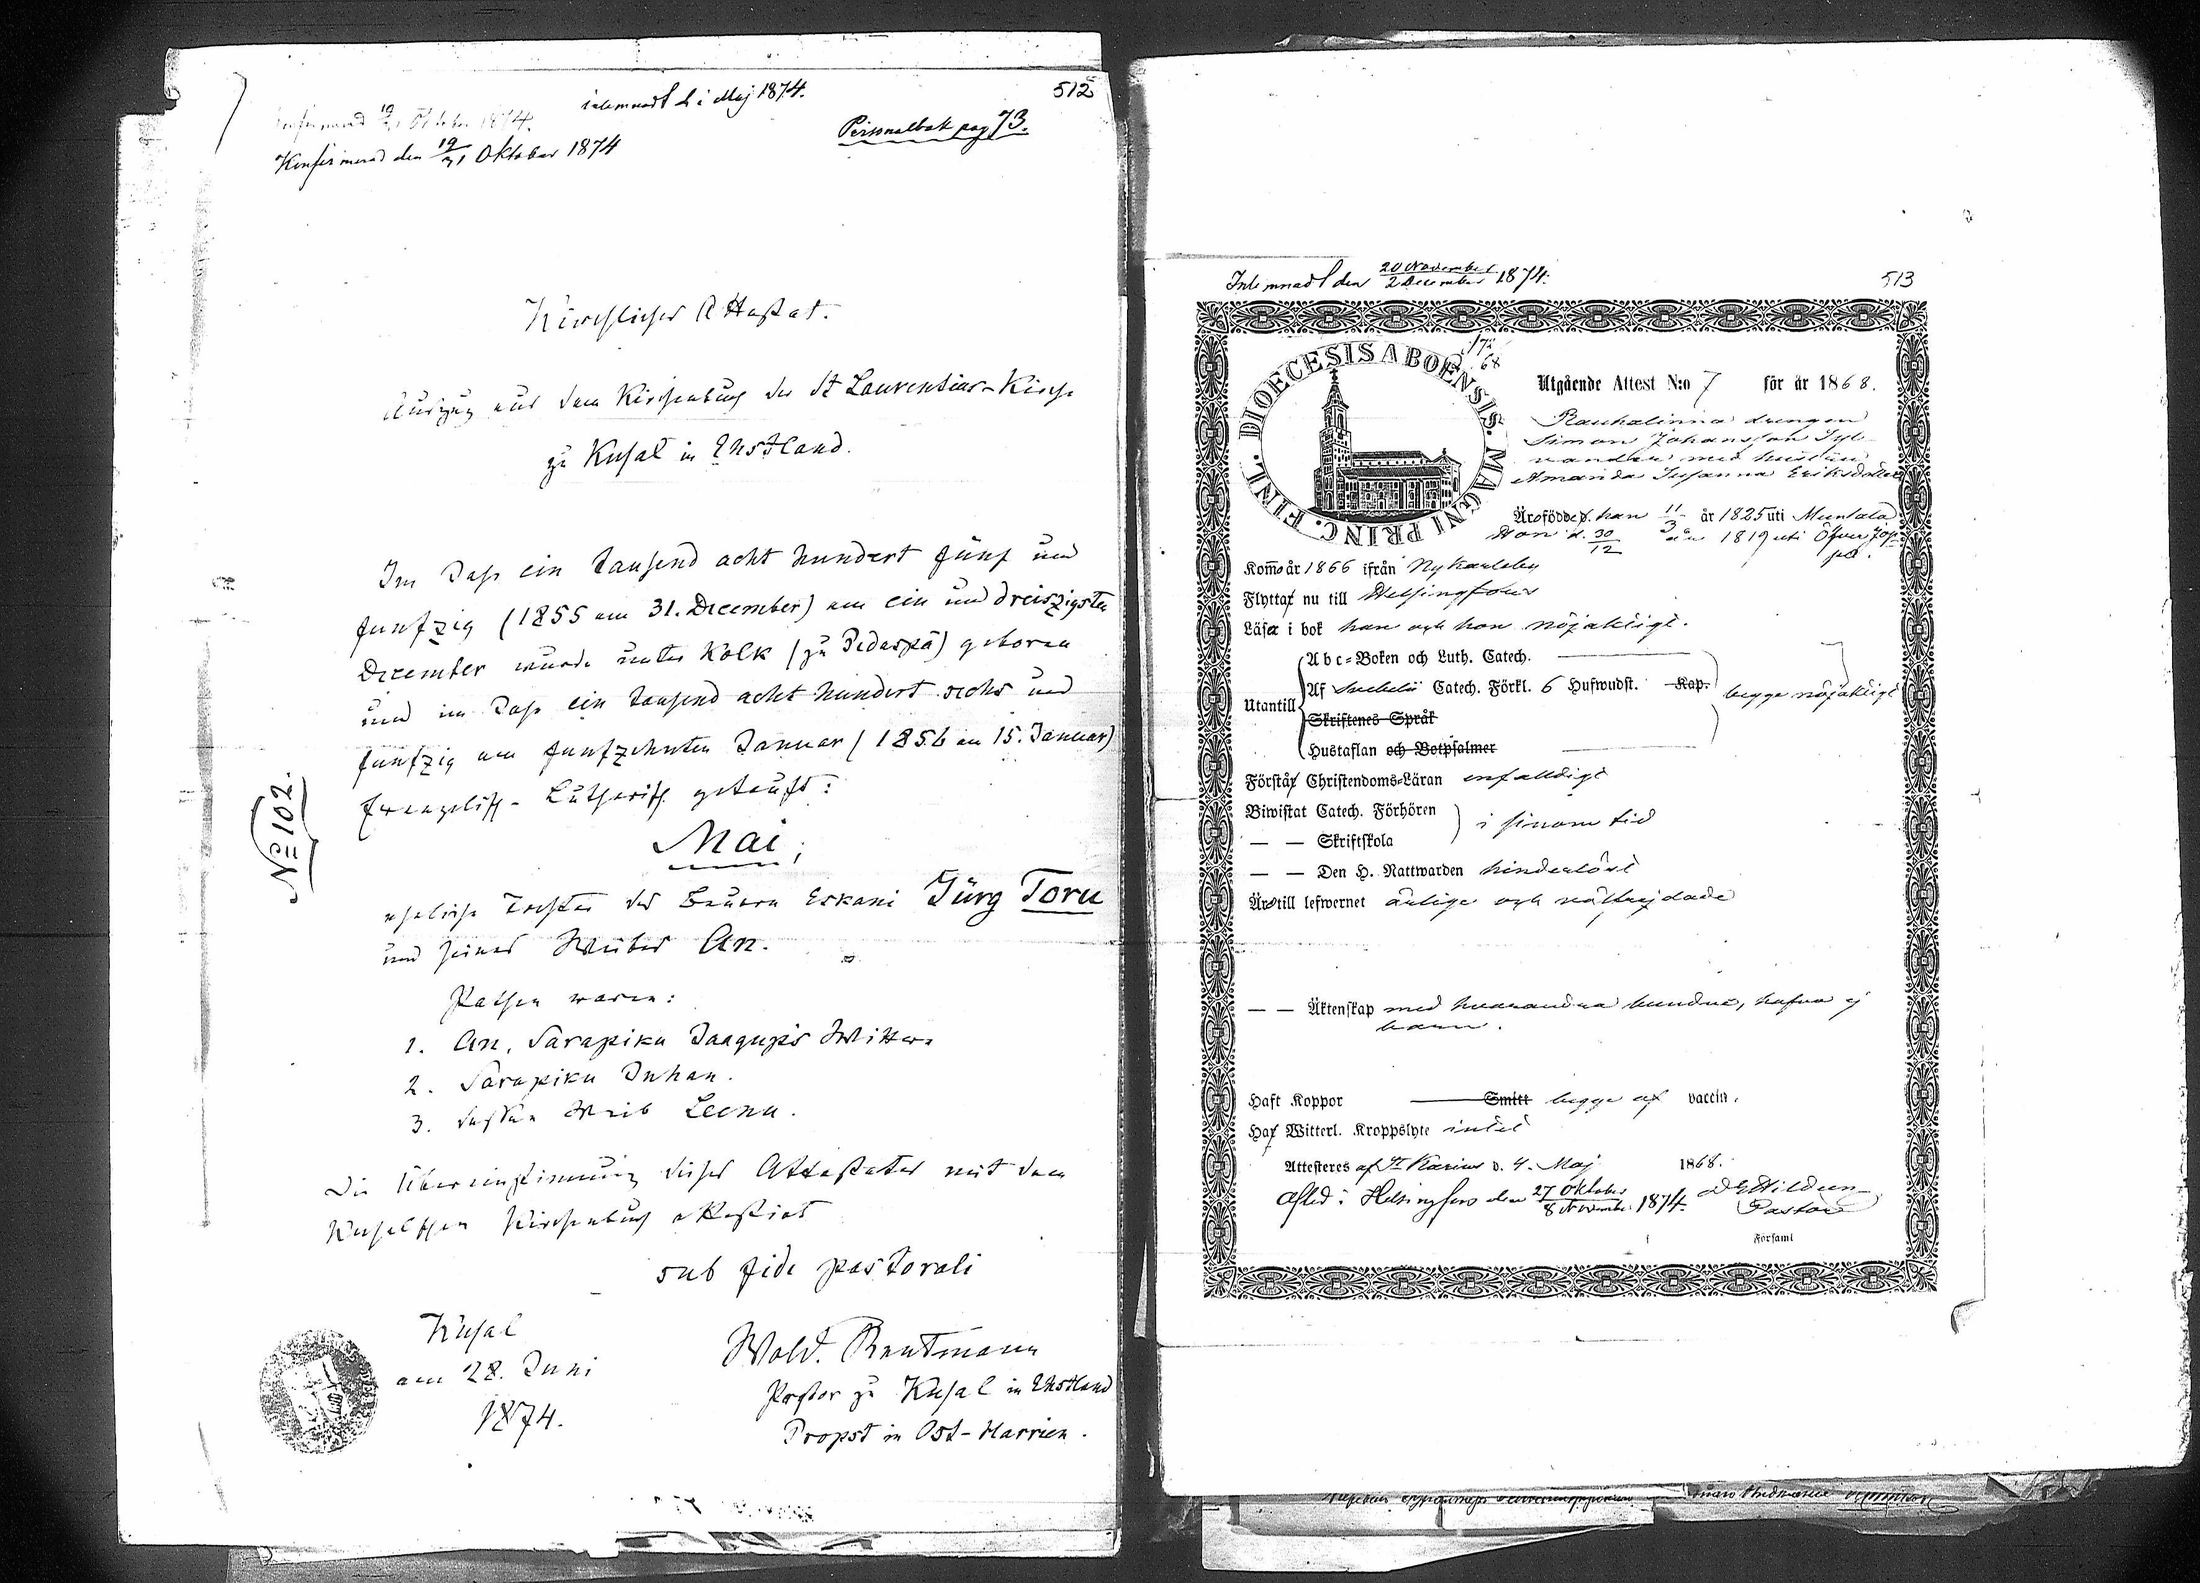 inlemnadt d. i Maj 1874.
512
Konfirmerad den 19/31 Oktober 1874
Personalbok pag 73.
Kirchliches Attestat.
Auszug aus dem Kirchenbuch der St Laurentius-Kirche
zu Kusal in Ehstland.
Im Jahr ein tausend acht hundert fünf und
funfzig (1855 am 31. December) am ein und dreiszigsten
December wurde unter Kolk (zu Pedaspä) geboren
und im Jahr ein tausend acht hundert sechs und
funfzig am funfzehnten Januar (1856 am 15. Januar)
Evangelisch-Lutherisch getauft:
Mai,
№ 102.
eheliche Tochter des Bauern Eskani Jürg Toru
und seines Weibes An.
Pathen waren:
1. An, Sarapiku Jaagup's Wittwe
2. Sarapiku Juhan.
3. dessen Weib Leenu.
Die Übereinstimmung dieses Attestates mit dem
Kusalschen Kirchenbuch attestirt
sub fide pastorali
Kusal
am 28. Juni
1874.
Wold. Rentmann
Pastor zu Kusal in Ehstland
Propst in Ost-Harrien.
Inlemnadt den 20 November/2 December 1874.
513
DIOECESIS ABOENSIS. MAGNI PRINC. FINL.
Utgående Attest N:o 7 för år 1868.
Rauhalinna drengen
Simon Johansson Syl-
vander med hustrun
Amanda Susanna Eriksdotter
Äro födde d. han 11/3 år 1825 uti Muntala
Hon d. 30/12 år 1819 uti Öfver Jep-
po.
Kom̅o år 1866 ifrån Nykarleby
Flytta nu till Helsingfors
Läsa i bok han och hon nöjaktigt.
Utantill
Abc-Boken och Luth. Catech.
Af Svebelii Catech. Förkl. 6 Hufwudst. Kap.
begge nöjaktigt
Skriftenes Språk
Hustaflan och Botpsalmer
Förstå Christendoms-Läran enfaldigt
Biwistat Catech. Förhören
i sinom tid
— — Skriftskola
— — Den H. Nattwarden hinderlöst
Äro till lefwernet ärlige och
— — Äktenskap med hvarandra bundne, hafva ej
barn.
Haft Koppor Smitt begge af vaccin.
Haf Witterl. Kroppslyte intet
Attesteres af St Karins d. 4. Maj 1868.
Afled i Helsingfors den 27 Oktober/8 November 1874.
Pastor
Forsaml